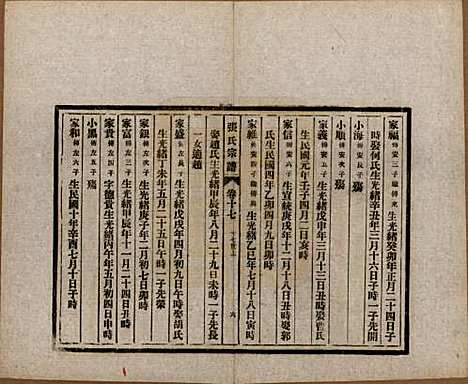 家福傳安三子驗傳光生光緒癸卯年正月二十四日卯
時娶何氏生光緒辛丑年三月十六日子時一子先開
小海傳安四子殤
小順傳安次子殤
家義傳安長子生光緒戊申年三月十三日丑時娶曾氏
生民國元年壬子四月二日亥時
家信傳安三子生宣統庚戌年十二月十八日丑時娶郭
氏生民國四年乙卯四月九日卯時
家維生光緒乙巳年七月十八日寅時
娶趙氏生光緒甲辰年八月二十九日未時一子先長
一女適趙
張氏宗譜
卷十七
六
家盛傳左長子生光緒戊戌年四月初九日午時娶胡氏
生光緒二十一年乙未年五月二十日未時一子先榮
家銀傳左次子生光緒庚子年二月初七日卯時
家富傳左三子生光緒甲辰年十一月二十四日丑時
家貴傳左四子字德貴生光緒丙午年五月初四日申時
小黑傳左五子殤
家和傳左六子生民國十年辛酉七月十日子時